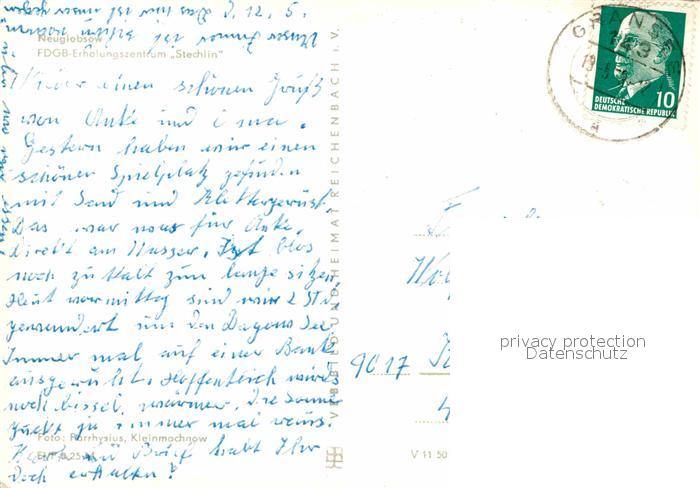 Neuglobsow
FDGB-Erholungszentrum „Stechlin"
Wieder einen schönen Gruß
von Anke und Oma.
Gestern haben wir einen
schönen Spielplatz gefunden
mit Sand und Klettergerüst.
Das war was für Anke.
Direkt am Wasser. Ist blos
noch zu kalt zum lange sitzen.
Heut vormittag sind wir 2 Std.
gewandert um den Dagow See.
Immer mal auf einer Bank
ausgeruht. Hoffentlich wirds
noch bissel wärmer. Die Sonne
guckt ja immer mal raus.
Foto: Parrhysius, Kleinmachnow
Karte und Brief habt Ihr
doch erhalten?
VERLAG BILD UND HEIMAT REICHENBACH I. V.
V 11 50
GRANSEE
143
10
DEUTSCHE
DEMOKRATISCHE REPUBLIK
9017
privacy protection
Datenschutz